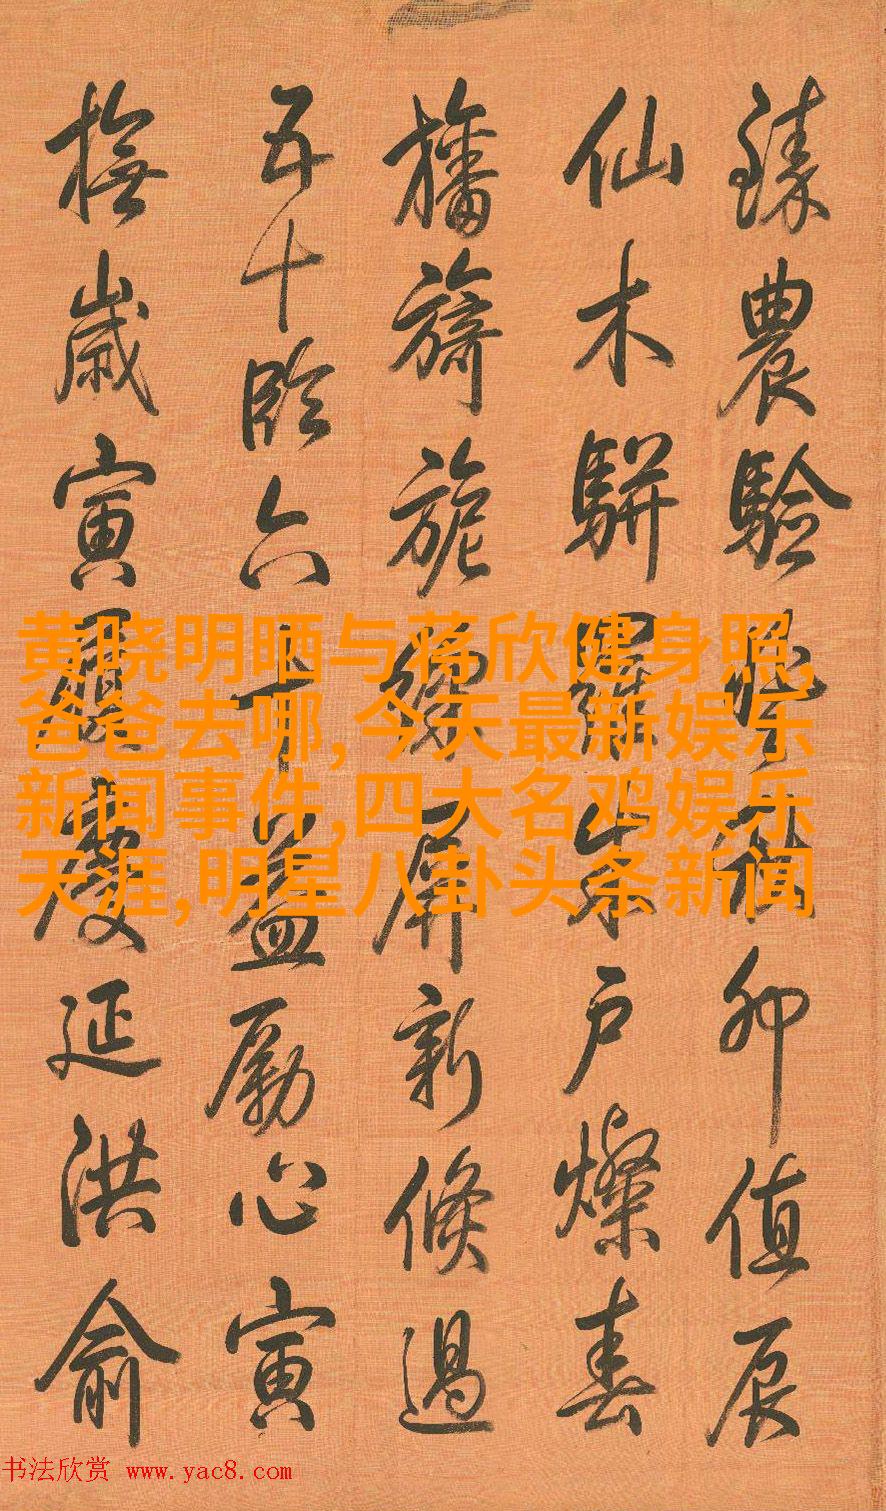 臻農驗卯值辰
仙木駢羅朱戶燦春
旛旖旎綵屏新倏過
五十臨六十益勵心寅
撫歲寅履慶延洪俞
黄晓明晒与蒋欣健身照,
爸爸去哪,今天最新娱乐
新闻事件,四大名鸡娱乐
天涯,明星八卦头条新闻
书法欣赏 www.yac8.com